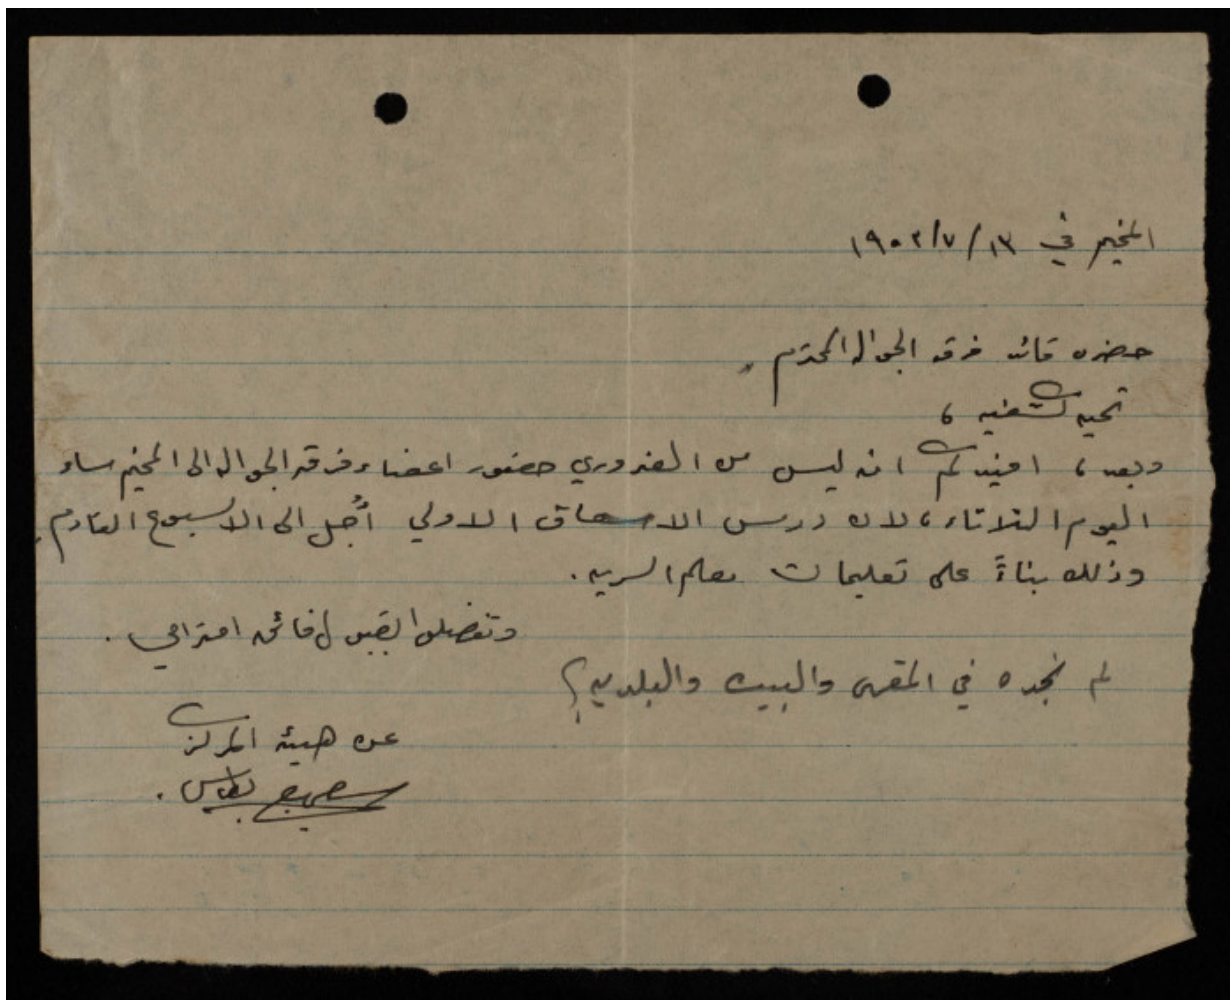 المخيم في ١٣ /٧/ ١٩٥٢
حضره قائد فرقه الجواله المحترم
تحيه كشفيه ،
وبعد ، افيدكم انه ليس من الضروري حضور اعضاء فرقه الجواله الى المخيم مساء
اليوم الثلاثاء ، لان درس الاسعاف الاولي أُجل الى الاسبوع القادم .
وذلك بناءً على تعليمات معلم السريه .
وتفضلوا بقبول فائق احترامي .
لم نجده في المقهى والبيت والبلديه ؟
عن هيئه المركز